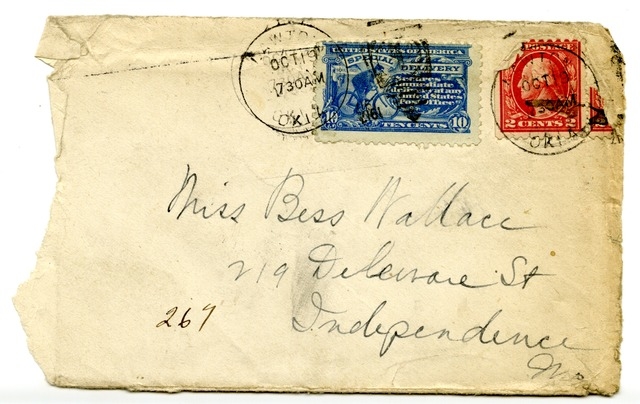 OCT 19
730AM
OKLA
UNITED STATES OF AMERICA
SPECIAL DELIVERY
Secures
immediate
delivery at any
United States
Post Office
10 TEN CENTS 10
OCT 19
730AM
OKLA
2 CENTS 2
Miss Bess Wallace
219 Delaware St
Independence
Mo
267